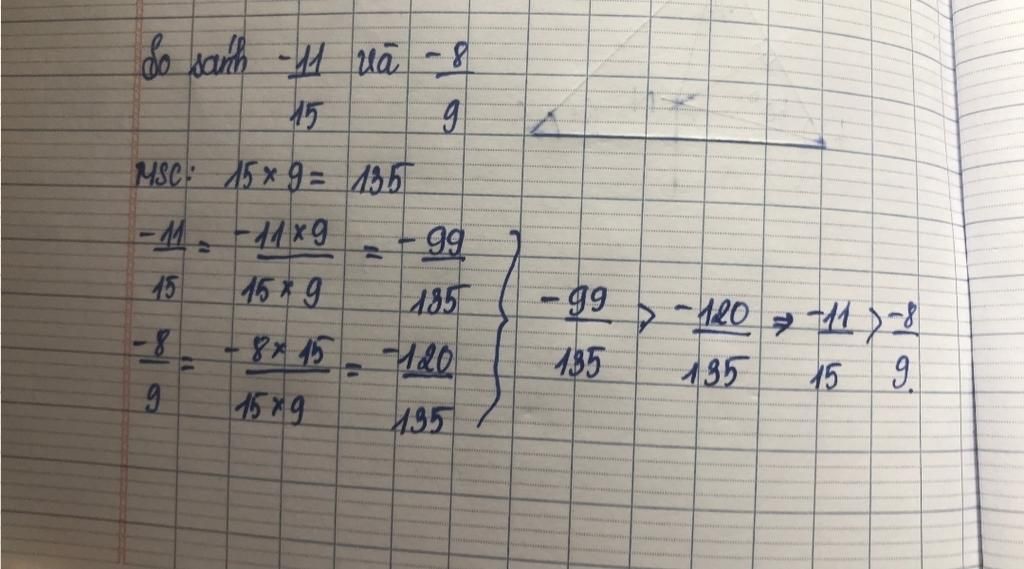 So sánh -11/15 và -8/9
MSC: 15 × 9 = 135
-11/15 = -11 × 9/15 × 9 = -99/135
-8/9 = -8 × 15/15 × 9 = -120/135
-99/135 > -120/135 ⇒ -11/15 > -8/9.